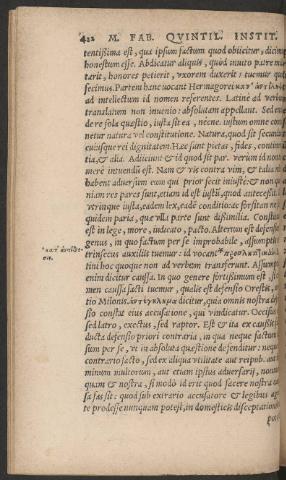 422 M. FAB. QVINTIL. INSTIT.
tentissima est, qua ipsum factum quod obiicitur, dicimus
honestum esse. Abdicatur aliquis, quòd inuito patre mi-
tarit, honores petierit, vxorem duxerit: tuemur quod
fecimus. Partem hanc vocant Hermagorei κατ᾽ ἀντίληψιν
ad intellectum id nomen referentes. Latinè ad verbum
translatum non inuenio: absoluta appellatur. Sed enim
de re sola quæstio, iusta sit ea, necne. iustum omne con-
netur natura vel constitutione. Natura, quod sit secundum
cuiusque rei dignitatem. Hæ sunt pietas, fides, continen-
tia, & alia. Adiiciunt & id quod sit par. verùm id non te-
merè intuendū est. Nam & vis contra vim, & talio nihil
habent aduersum eum qui prior fecit iniusti: & non quo-
niam res pares sunt, etiam id est iustū, quod antecessit.
vtrinque iusta, eadem lex, eadē conditio: ac forsitan ne
quidem paria, quæ vlla parte sunt dissimilia. Constitutio
est in lege, more, iudicato, pacto. Alterum est defensionis
genus, in quo factum per se improbabile, assumptis
κατ᾽ ἀντίθε-
σιν.
trinsecus auxiliis tuemur: id vocant
tini hoc quoque non ad verbum transferunt. Assumpti
enim dicitur caussa. In quo genere fortissimum est, si
men caussa facti tuemur, qualis est defensio Orestis,
tio Milonis. ἀντέγκλημα dicitur, quia omnis nostra defen-
sio constat eius accusatione, qui vindicatur. Occisus
sed latro, exectus, sed raptor. Est & ita ex caussis
ducta defensio priori contraria, in qua neque factum
sium per se, vt in absoluta quæstione defenditur: neque
contrario facto, sed ex aliqua vtilitate aut reipub. aut
minum multorum, aut etiam ipsius aduersarij, nonnun-
quam & nostra, si modò id erit quod facere nostra cau-
sa fas sit: quod sub extrario accusatore & legibus agen-
te prodesse nunquam potest, in domesticis disceptationi-